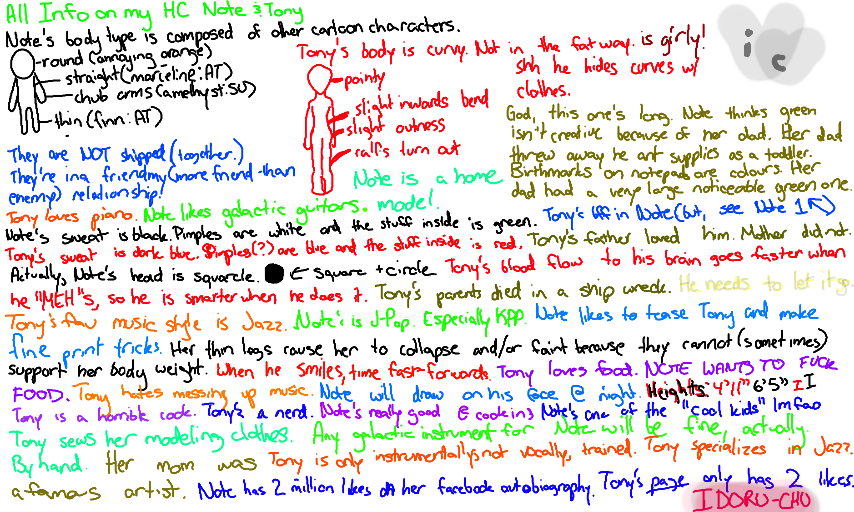 All Info on my HC Note & Tony
Note's body type is composed of other cartoon characters.
round (annoying orange)
straight (marceline: AT)
chub arms (amethyst: SU)
thin (finn: AT)
Tony's body is curvy. Not in the fat way. is girly!
shh he hides curves w/
clothes.
pointy
slight inwards bend
slight outness
calfs turn out
i c
God, this one's long. Note thinks green
isn't creative because of her dad. Her dad
threw away he art supplies as a toddler.
Birthmarks on notepads are colours. Her
dad had a very large noticeable green one.
They are NOT shipped (together.)
They're in a friendmy (more friend than
enemy) relationship!
Note is a home
model.
Tony loves piano. Note likes galactic guitars.
Tony's bff in Note (but, see Note 1
Note's sweat is black. Pimples are white and the stuff inside is green.
Tony's sweat is dark blue. Pimples(?) are blue and the stuff inside is red. Tony's father loved him. Mother did not.
Actually, Note's head is squarcle. ← square + circle Tony's blood flow to his brain goes faster when
he "MEH"s, so he is smarter when he does it. Tony's parents died in a ship wreck. He needs to let it go.
Tony's fav music style is Jazz. Note's is J-Pop. Especially KPP. Note likes to tease Tony and make
fine print tricks. Her thin legs cause her to collapse and/or faint because they cannot (sometimes)
support her body weight. When he smiles, time fast-forwards. Tony loves food. NOTE WANTS TO FUCK
FOOD. Tony hates messing up music. Note will draw on his face @ night. Heights: 4"11" 6'5" I I
Tony is a horrible cook. Tony's a nerd. Note's really good @ cooking Note's one of the "cool kids" lmfao
Tony sews her modeling clothes. Any galactic instrument for Note will be fine, actually.
By hand. Her mom was Tony is only instrumentally, not vocally, trained. Tony specializes in Jazz.
a famous artist. Note has 2 million likes on her facebook autobiography. Tony's page only has 2 likes.
IDORU-CHU